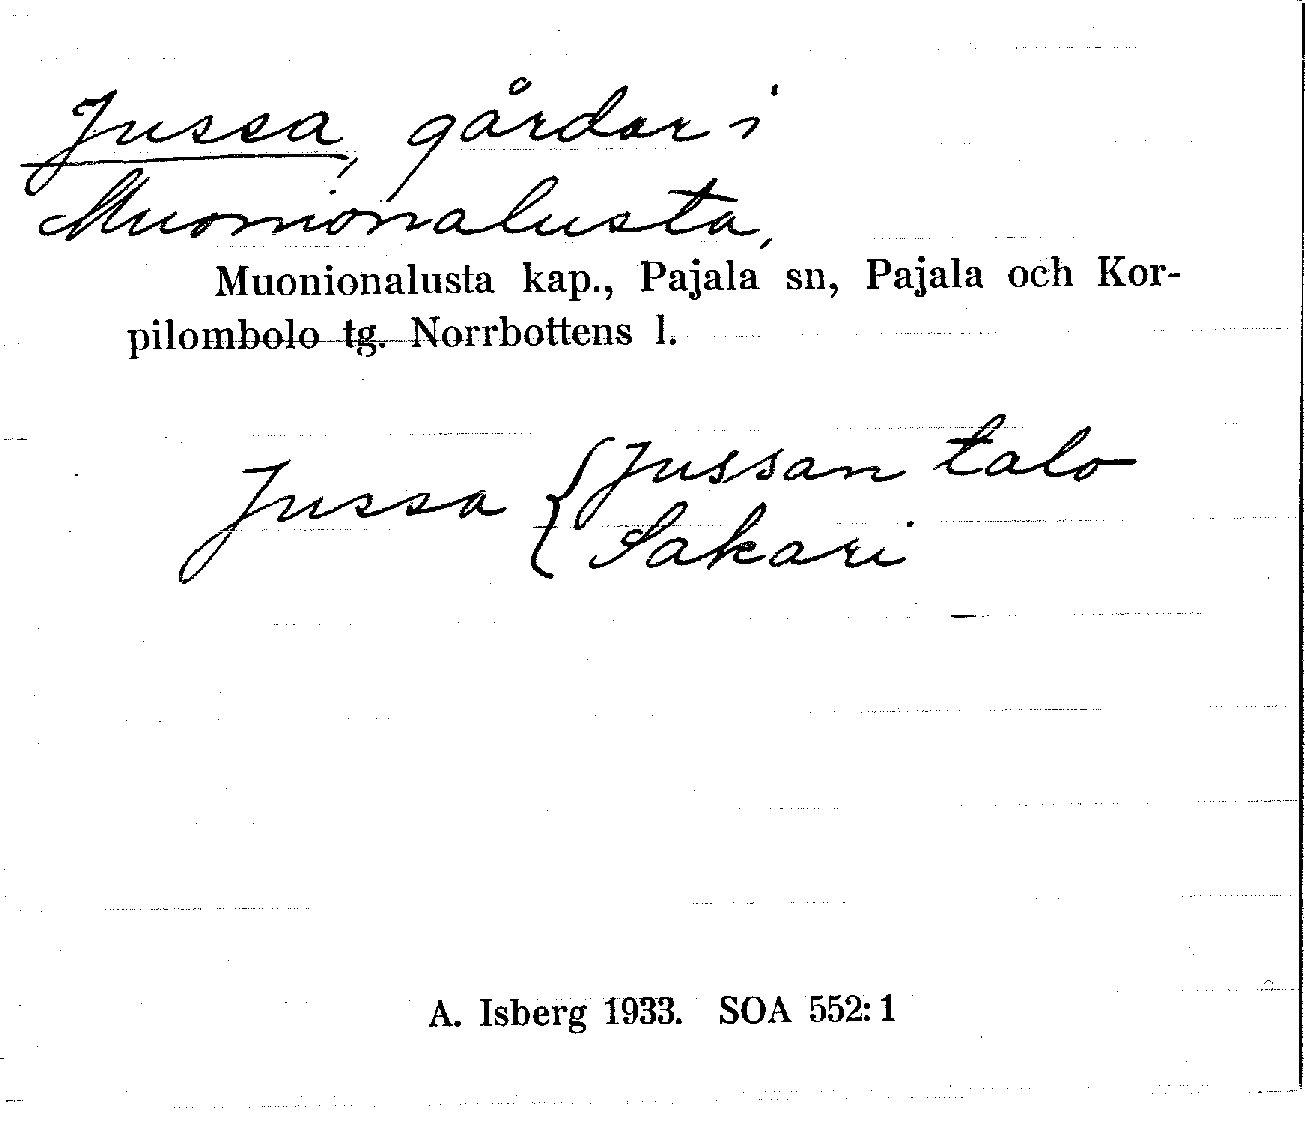 Jussa, gårdar i
Muonionalusta,
Muonionalusta kap., Pajala sn, Pajala och Kor-
pilombolo tg. Norrbottens l.
Jussa { Jussan talo
Sakari
A. Isberg 1933. SOA 552: 1